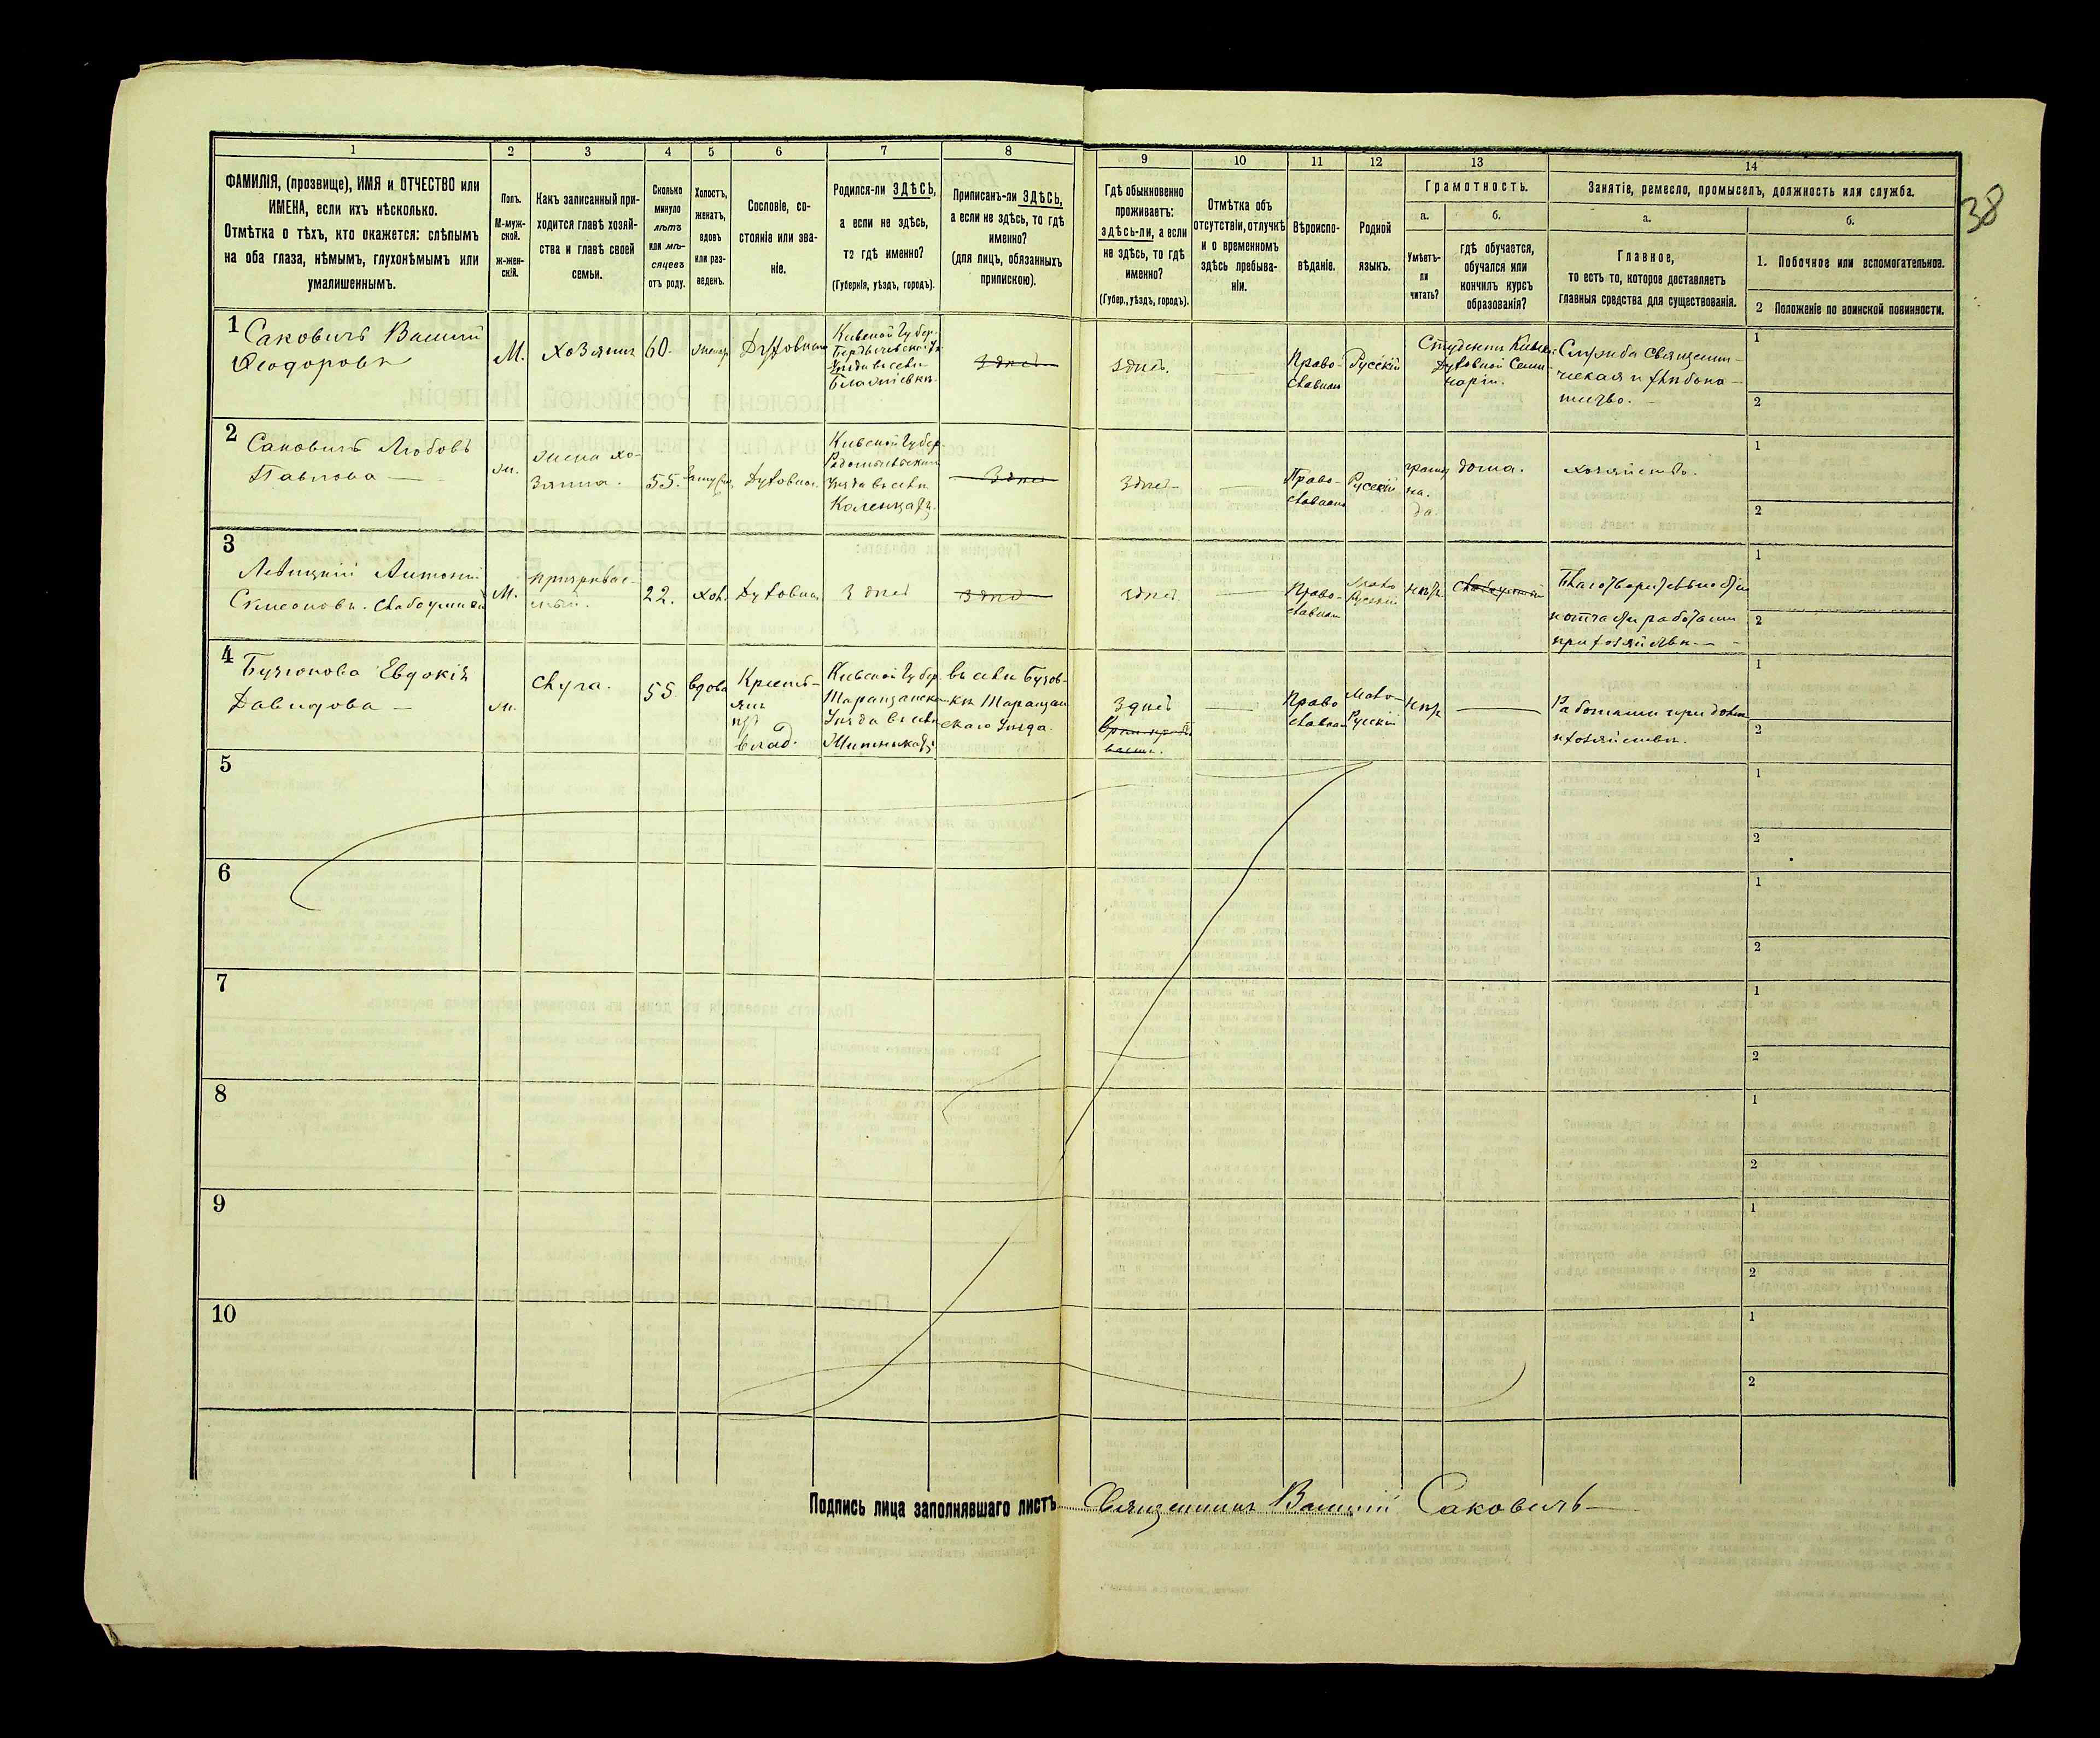 38
1 2 3 4 5 6 7 8 9 10 11 12 13 14
ФАМИЛІЯ, (прозвище), ИМЯ и ОТЧЕСТВО или
ИМЕНА, если ихъ нѣсколько.
Отмѣтка о тѣхъ, кто окажется: слѣпымъ
на оба глаза, нѣмымъ, глухонѣмымъ или
умалишеннымъ.
Полъ.
М-муж-
ской.
ж-жен-
скій.
Какъ записанный при-
ходится главѣ хозяй-
ства и главѣ своей
семьи.
Сколько
минуло
лѣтъ
или мѣ-
сяцевъ
отъ роду.
Холостъ,
женатъ,
вдовъ
или раз-
веденъ.
Сословіе, со-
стояніе или зва-
ніе.
Родился-ли ЗДѢСЬ,
а если не здѣсь,
то гдѣ именно?
(Губернія, уѣздъ, городъ).
Приписанъ-ли ЗДѢСЬ,
а если не здѣсь, то гдѣ
именно?
(для лицъ, обязанныхъ
припискою).
Гдѣ обыкновенно
проживаетъ:
здѣсь-ли, а если
не здѣсь, то гдѣ
именно?
(Губер., уѣздъ, городъ).
Отмѣтка объ
отсутствіи, отлучкѣ
и о временномъ
здѣсь пребыва-
ніи.
Вѣроиспо-
вѣданіе.
Родной
языкъ.
Грамотность.
а.
Умѣетъ-
ли
читать?
б.
гдѣ обучается,
обучался или
кончилъ курсъ
образованія?
Занятіе, ремесло, промыселъ, должность или служба.
а.
Главное,
то есть то, которое доставляетъ
главныя средства для существованія.
б.
1. Побочное или вспомогательное.
2 Положеніе по воинской повинности.
1
Саковичъ Василій
Ѳеодоровъ
М.
Хозяинъ
60.
женатъ
Духовный
Кіевской Губер.
Здѣсь
Здѣсь.
Право-
славное
Русскій
Студентъ Кіевск.
Духовной Семи-
наріи.
Служба Священни-
ческая и хлѣбопа-
шество.
1
2
2
Саковичъ Любовь
Павлова
ж.
жена хо-
зяина.
55.
Духовная.
Кіевской Губер.
Радомысльскаго
Уѣзда въ селѣ
Здѣсь
Здѣсь
Право-
славная
Русскій
да.
дома.
хозяйство.
1
2
3
Левицкій Антоній
Слабоумный
М.
22.
хол.
Духовный
Здѣсь
Здѣсь
Здѣсь
Право-
славный
Мало
Русскій
Слабоумный
работами
при хозяйствѣ
1
2
4
Евдокія
Давидова
ж.
слуга.
55
вдова
Крестъ-
янъ
изъ
влад.
Кіевской Губер.
Таращанска-
Уѣзда въ селѣ
въ селѣ Бузов-
кѣ Таращан-
скаго Уѣзда.
Здѣсь
Право
славная
Мало-
Русскій
Работами при домѣ
и хозяйствѣ.
1
2
5
1
2
6
1
2
7
1
2
8
1
2
9
1
2
10
1
2
Подпись лица заполнявшаго листъ Священникъ Василій Саковичъ